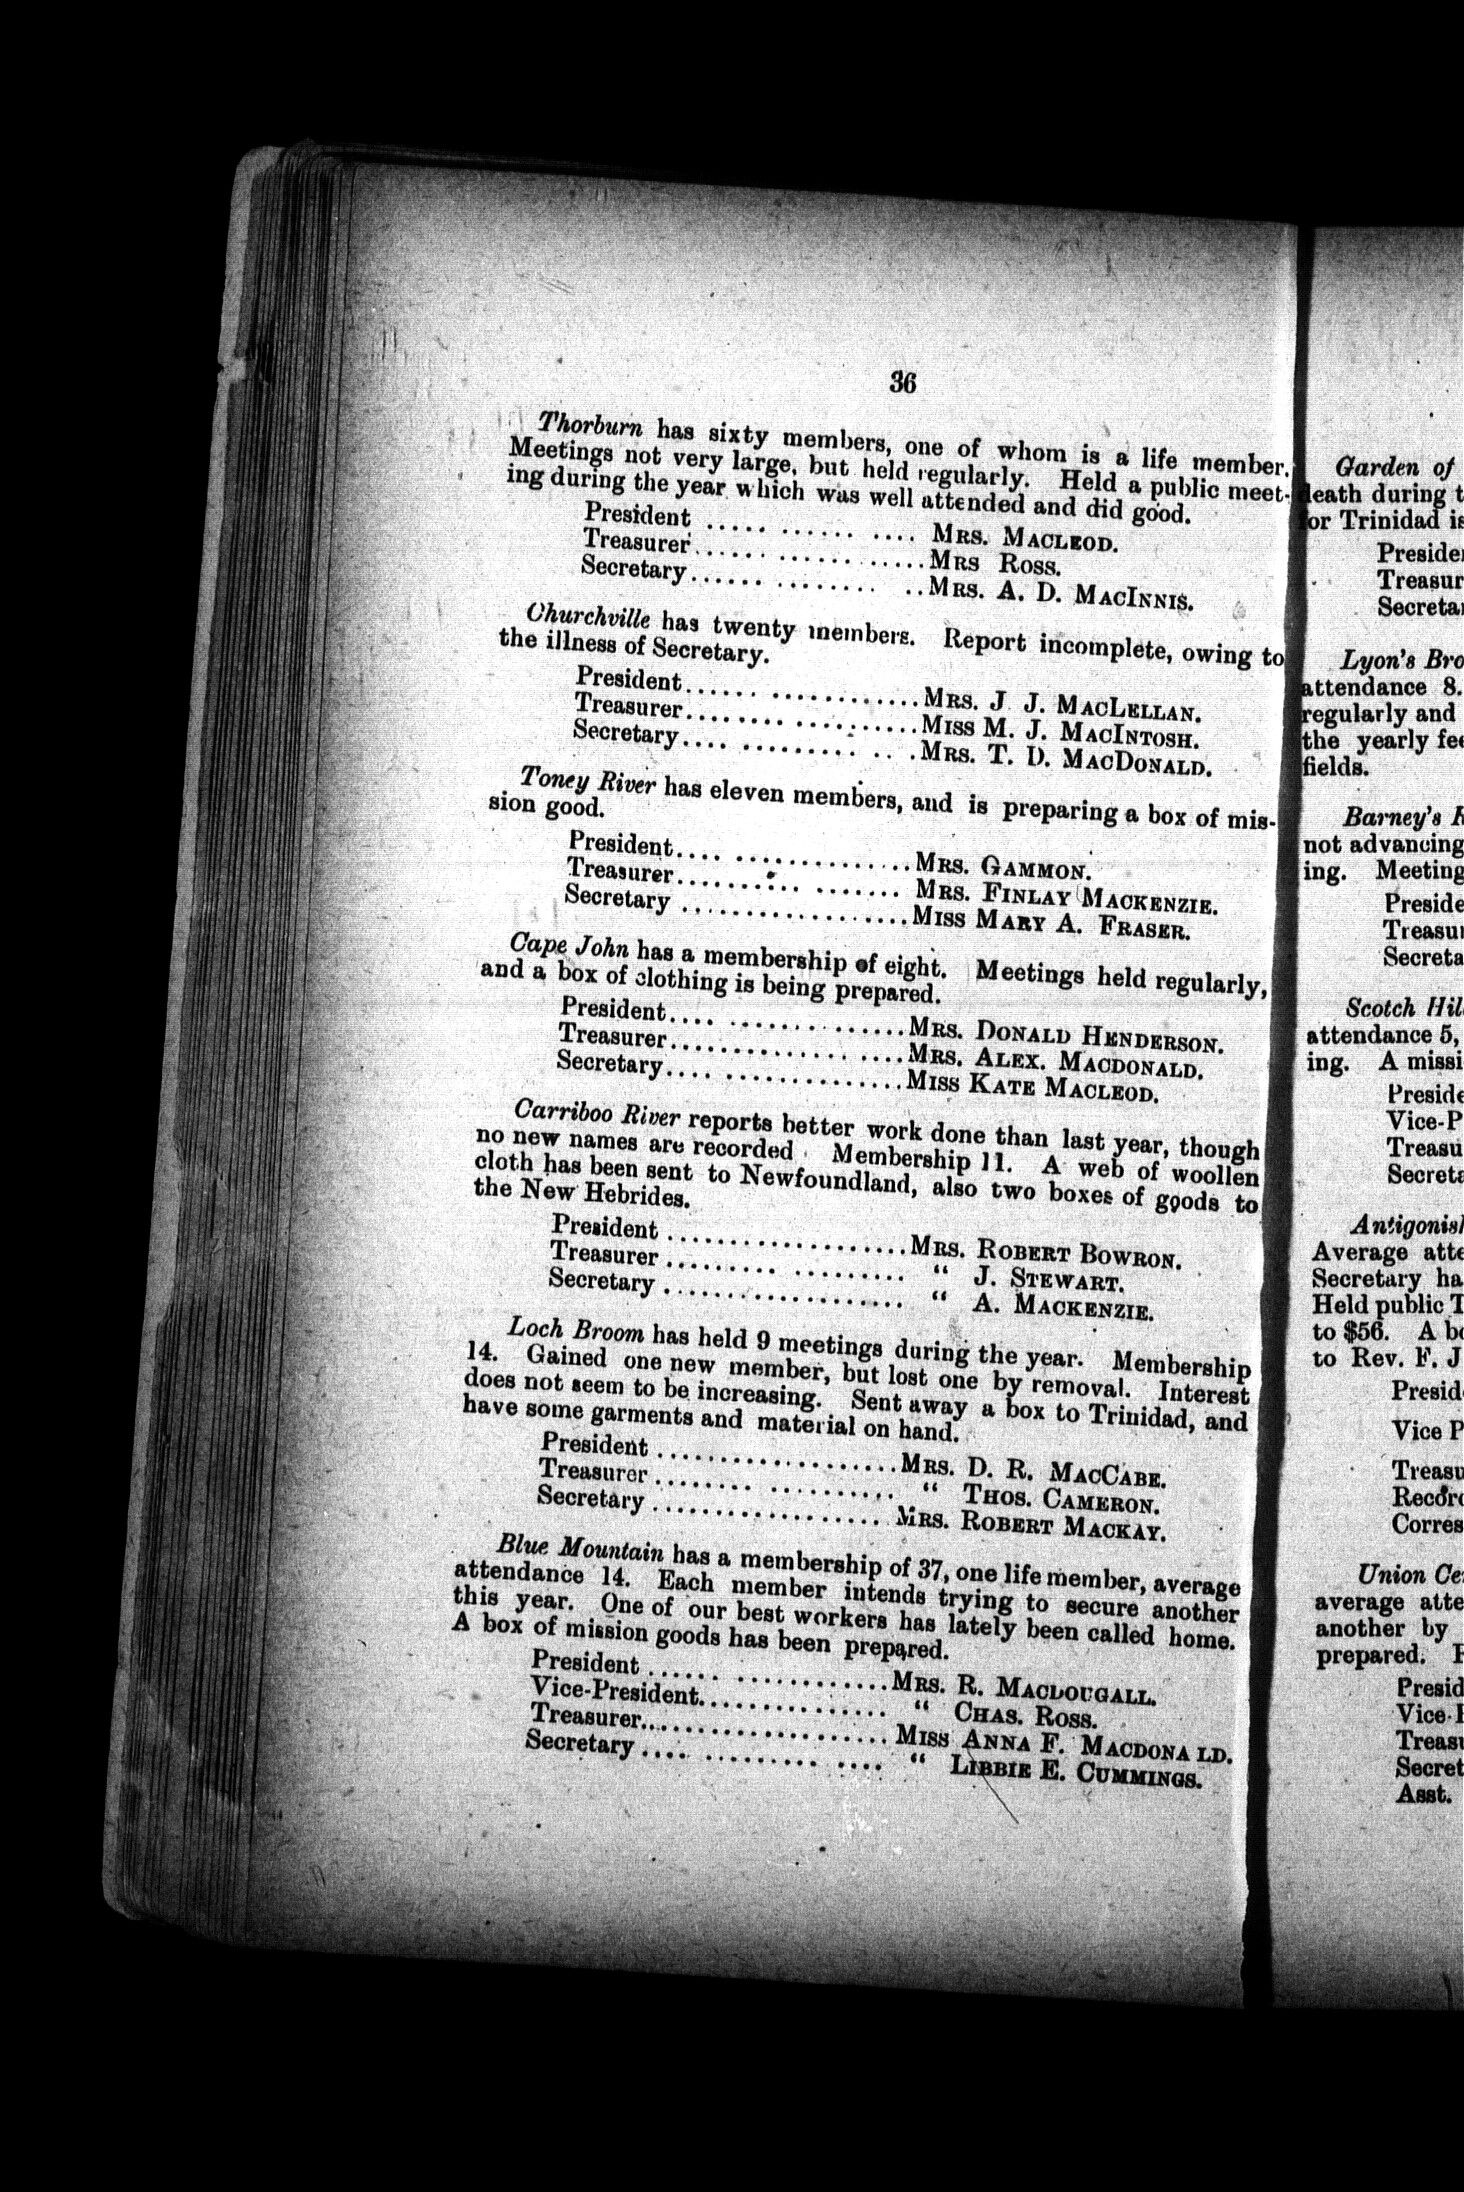 36
Thorburn has sixty members, one of whom is a life member.
Meetings not very large, but held regularly. Held a public meet-
ing during the year which was well attended and did good.
President ..... ...... .... MRS. MACLEOD.
Treasurer...... ...... .....MRS ROSS.
Secretary...... ........ ..MRS. A. D. MACINNIS.
Churchville has twenty members. Report incomplete, owing to
the illness of Secretary.
President...... ............MRS. J J. MACLELLAN.
Treasurer........ ..........MISS M. J. MACINTOSH.
Secretary.... .......... .. .MRS. T. D. MACDONALD.
Toney River has eleven members, and is preparing a box of mis-
sion good.
President.... ..............MRS. GAMMON.
Treasurer.......... ....... MRS. FINLAY MACKENZIE.
Secretary ..................MISS MARY A. FRASER.
Cape John has a membership of eight. Meetings held regularly,
and a box of clothing is being prepared.
President.... ..............MRS. DONALD HENDERSON.
Treasurer.............. ....MRS. ALEX. MACDONALD.
Secretary.... ..............MISS KATE MACLEOD.
Carriboo River reports better work done than last year, though
no new names are recorded Membership 11. A web of woollen
cloth has been sent to Newfoundland, also two boxes of goods to
the New Hebrides.
President ..................MRS. ROBERT BOWRON.
Treasurer ......... ......... " J. STEWART.
Secretary ................... " A. MACKENZIE.
Loch Broom has held 9 meetings during the year. Membership
14. Gained one new member, but lost one by removal. Interest
does not seem to be increasing. Sent away a box to Trinidad, and
have some garments and material on hand.
President ..................MRS. D. R. MACCABE.
Treasurer ........ .......... " THOS. CAMERON.
Secretary .................. MRS. ROBERT MACKAY.
Blue Mountain has a membership of 37, one life member, average
attendance 14. Each member intends trying to secure another
this year. One of our best workers has lately been called home.
A box of mission goods has been prepared.
President ...... ............MRS. R. MACDOUGALL.
Vice-President............... " CHAS. ROSS.
Treasurer................... MISS ANNA F. MACDONALD.
Secretary .... ......... .... " LIBBIE E. CUMMINGS.
Garden of
death during
for Trinidad
Lyon's
attendance 8.
regularly and
the yearly
fields.
Barney's
not advancing
ing. Meeting
Scotch
attendance 5,
ing. A
Average
Secretary
Held public
to $56. A
to Rev. F. J
Vice
Union
average
another by
prepared.
Asst.